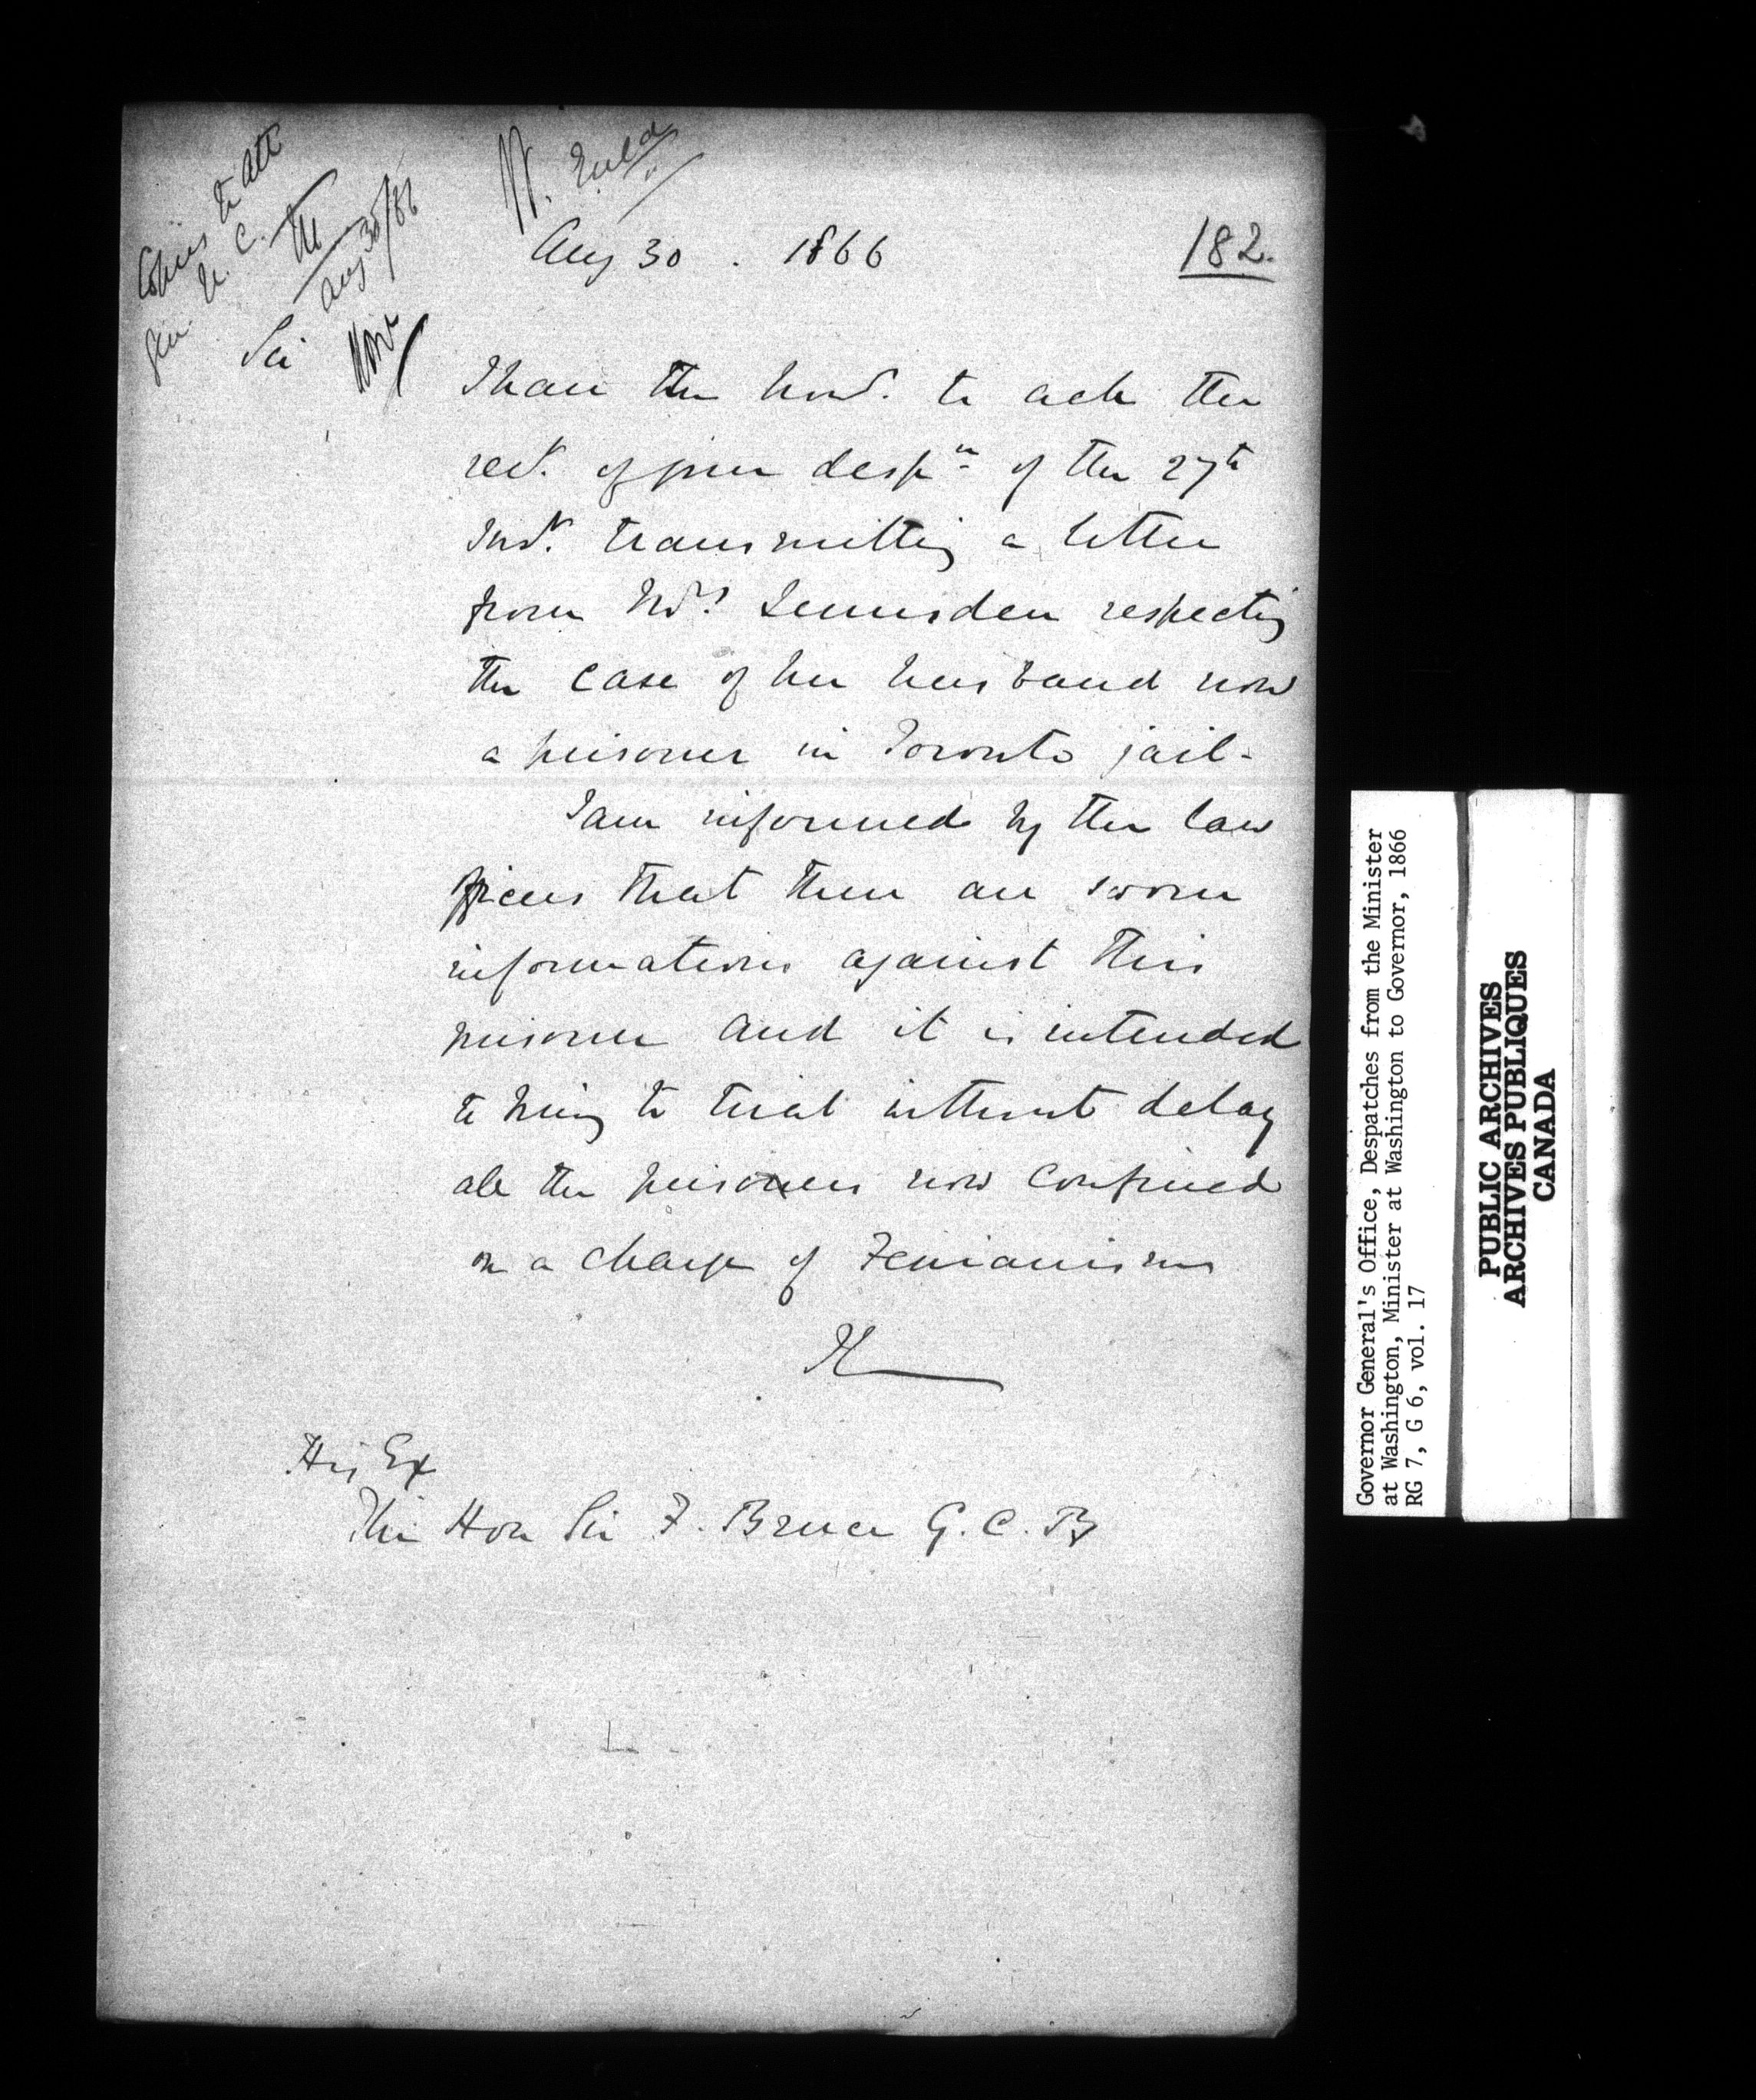 Copies to Att
Gen. U. C.
Aug 30/66
Aug 30. 1866
182.
Sir
I have the honr. to ack the
rect. of your despn. of the 27th
Inst. transmitting a letter
from Mrs. Lumsden respecting
the case of her husband now
a prisoner in Toronto jail.
I am informed by the law
officers that there are sworn
informations against this
prisoner and it is intended
to bring to trial without delay
all the prisoners now confined
on a charge of Fenianism
His Ex
The Hon Sir F. Bruce G. C. B
Governor General's Office, Despatches from the Minister
at Washington, Minister at Washington to Governor, 1866
RG 7, G 6, vol. 17
PUBLIC ARCHIVES
ARCHIVES PUBLIQUES
CANADA